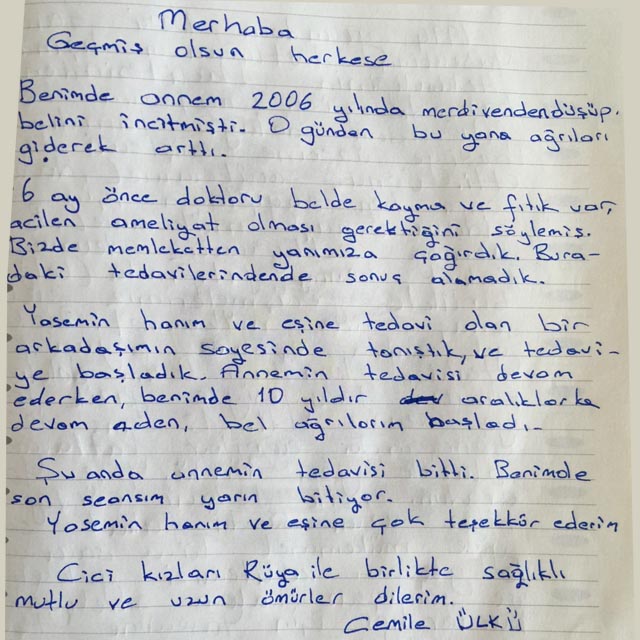 Merhaba
Geçmiş olsun herkese
Benimde annem 2006 yılında merdivendendüşüp.
belini incitmişti. O günden bu yana ağrıları
giderek arttı.
6 ay önce doktoru belde kayma ve fıtık var,
acilen ameliyat olması gerektiğini söylemiş.
Bizde memleketten yanımıza çağırdık. Bura-
daki tedavilerindende sonuç alamadık.
Yasemin hanım ve eşine tedavi olan bir
arkadaşımın sayesinde tanıştık, ve tedavi-
ye başladık. Annemin tedavisi devam
ederken, benimde 10 yıldır aralıklarka
devam eden, bel ağrılarım başladı.
Şu anda annemin tedavisi bitti. Benimde
son seansım yarın bitiyor.
Yasemin hanım ve eşine çok teşekkür ederim
Cici kızları Rüya ile birlikte sağlıklı
mutlu ve uzun ömürler dilerim.
Cemile ÜLKÜ